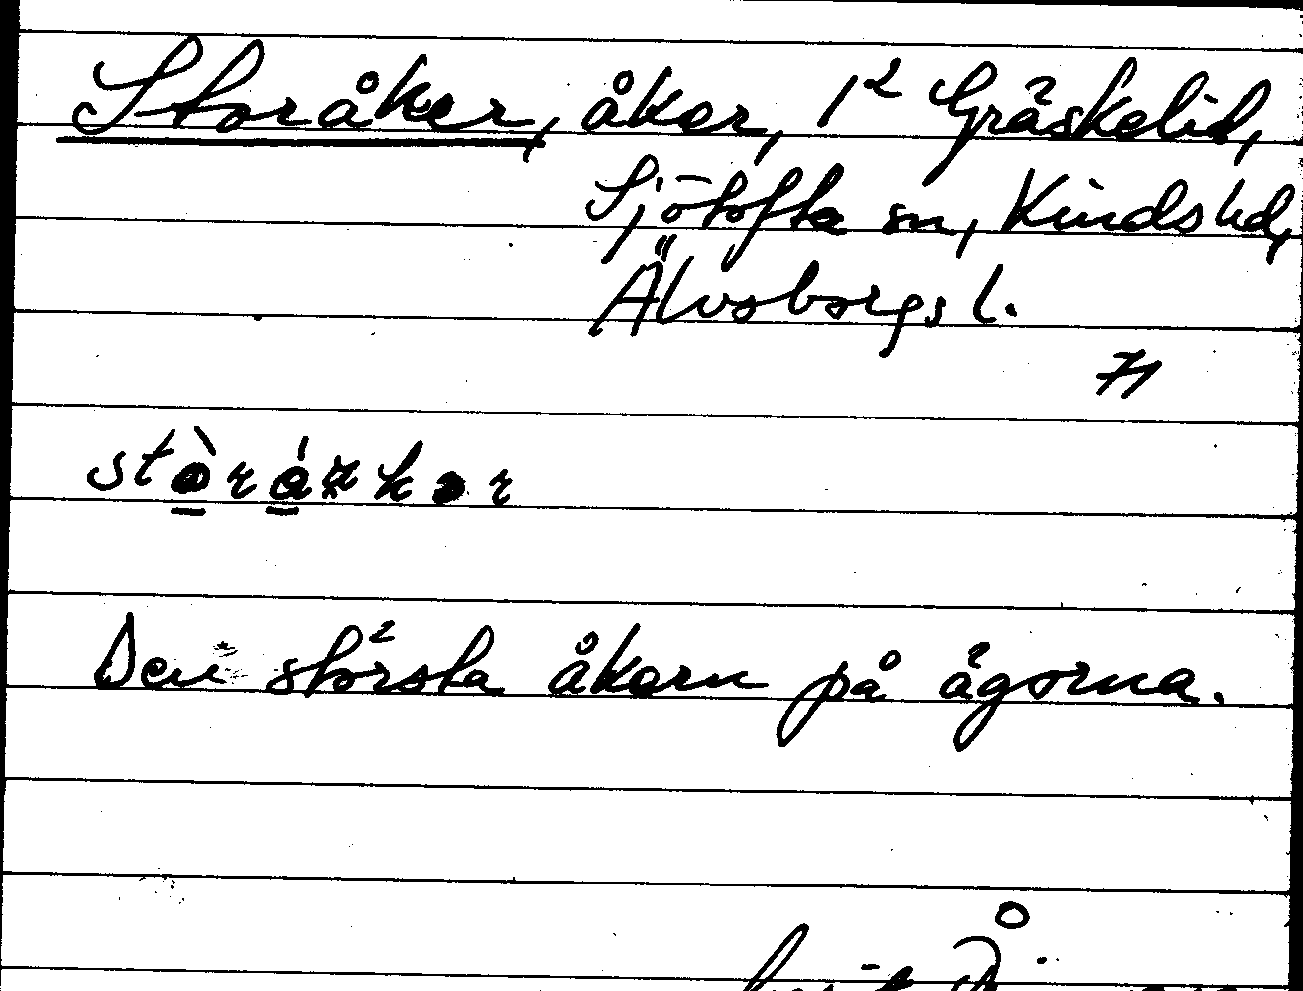 Storåker, åker, 1² Gräskelid,
Sjötofta sn, Kinds hd,
Älvsborgs l.
71
Den största åkern på ägorna.